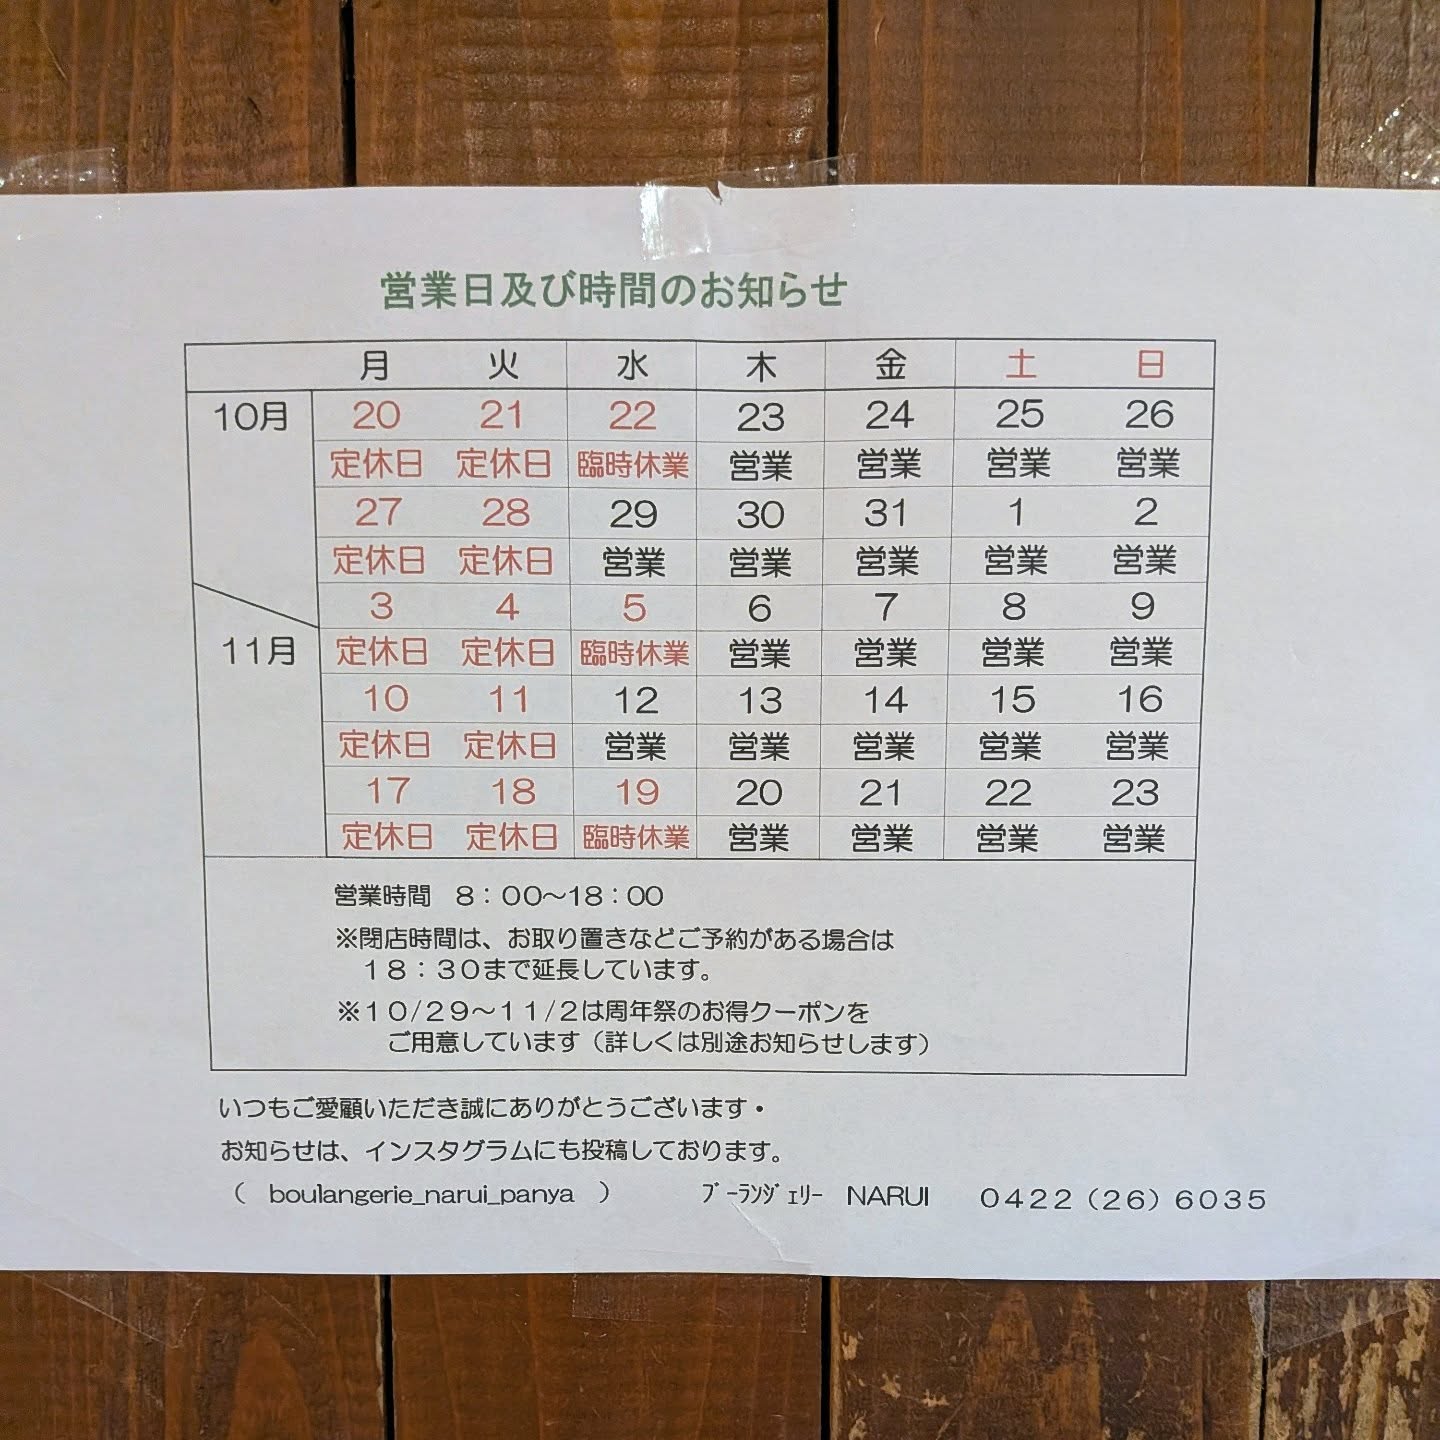 営業日及び時間のお知らせ
月 火 水 木 金 土 日
10月 20 21 22 23 24 25 26
定休日 定休日 臨時休業 営業 営業 営業 営業
27 28 29 30 31 1 2
定休日 定休日 営業 営業 営業 営業 営業
3 4 5 6 7 8 9
11月 定休日 定休日 臨時休業 営業 営業 営業 営業
10 11 12 13 14 15 16
定休日 定休日 営業 営業 営業 営業 営業
17 18 19 20 21 22 23
定休日 定休日 臨時休業 営業 営業 営業 営業
営業時間 8：00～18：00
※閉店時間は、お取り置きなどご予約がある場合は
１８：３０まで延長しています。
※１０/２９～１１/２は周年祭のお得クーポンを
ご用意しています（詳しくは別途お知らせします）
いつもご愛顧いただき誠にありがとうございます・
お知らせは、インスタグラムにも投稿しております。
（ boulangerie_narui_panya ） ﾌﾞｰﾗﾝｼﾞｪﾘｰ NARUI ０４２２（２６）６０３５